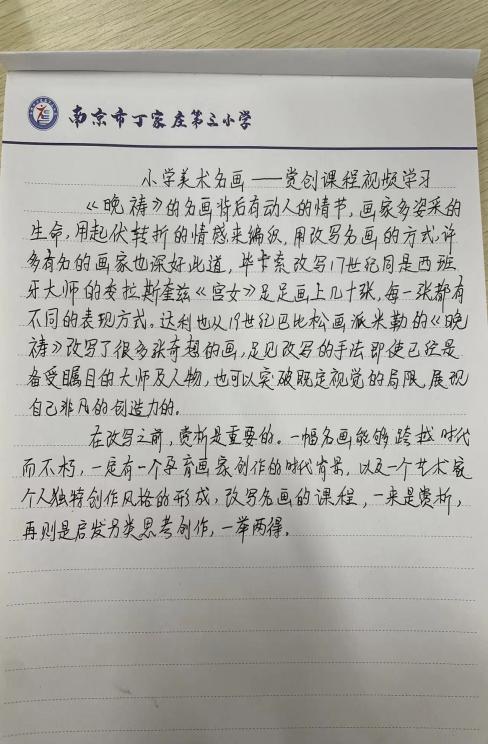 南京市丁家庄第三小学
小学美术名画——赏创课程视频学习
《晚祷》的名画背后有动人的情节,画家多姿采的
生命,用起伏转折的情感来编织,用改写名画的方式,许
多有名的画家也深好此道,毕卡索改写17世纪同是西班
牙大师的委拉斯奎兹《宫女》足足画上几十张,每一张都有
不同的表现方式。达利也从19世纪巴比松画派米勒的《晚
祷》改写了很多张奇想的画,足见改写的手法即使已经是
备受瞩目的大师及人物,也可以突破既定视觉的局限,展现
自己非凡的创造力的。
在改写之前,赏析是重要的。一幅名画能够跨越时代
而不朽,一定有一个孕育画家创作的时代背景,以及一个艺术家
个人独特创作风格的形成,改写名画的课程,一来是赏析,
再则是启发另类思考创作,一举两得。